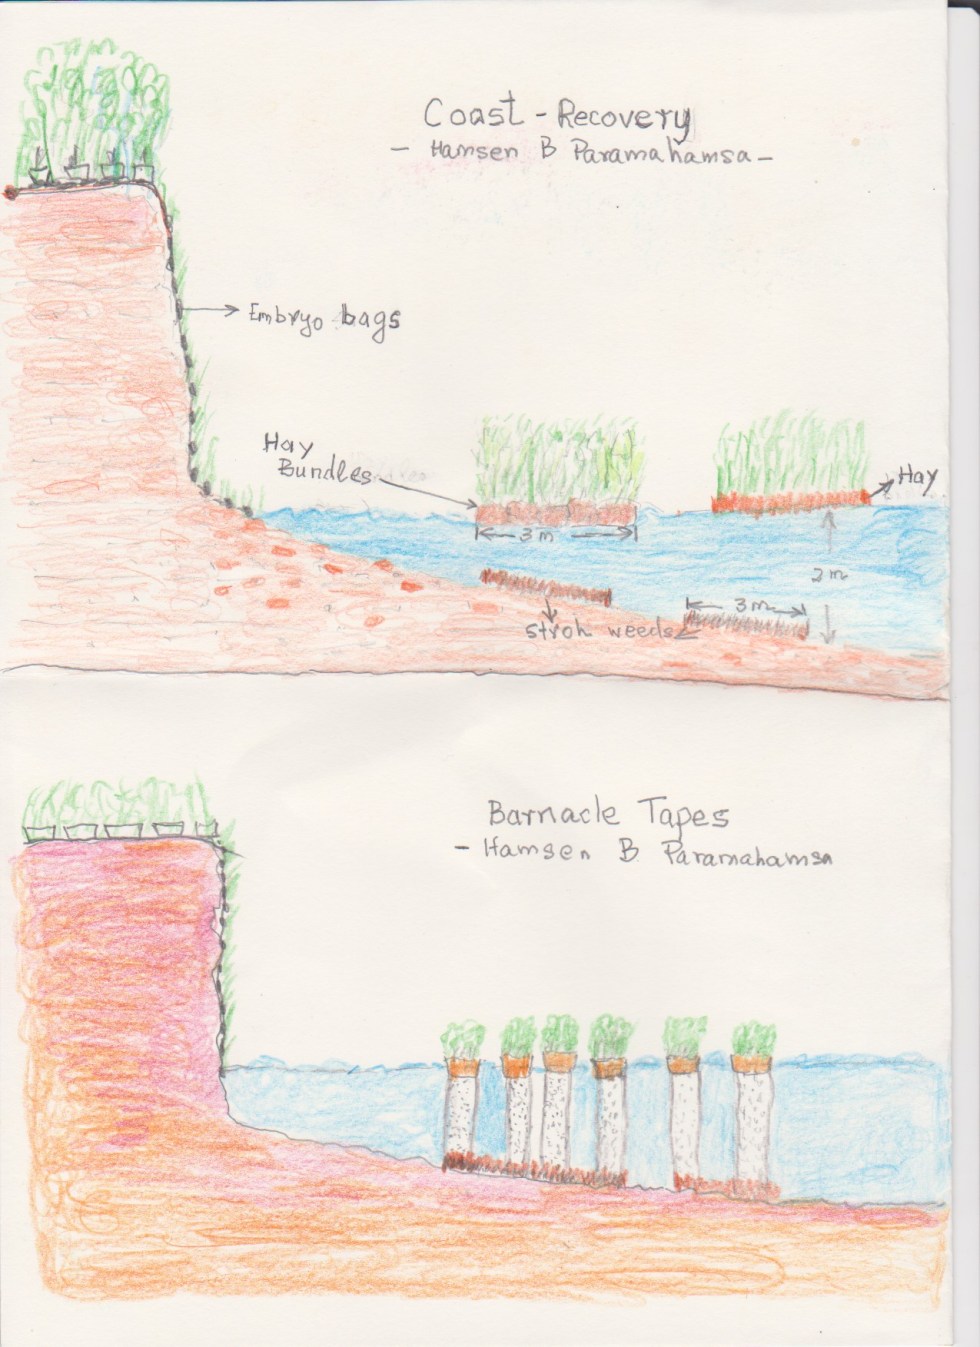 Coast - Recovery
- Hamsen B Paramahamsa -
Embryo bags
Hay
Bundles
Hay
3 m
2 m
3 m
stroh weeds
Barnacle Tapes
- Hamsen B Paramahamsa